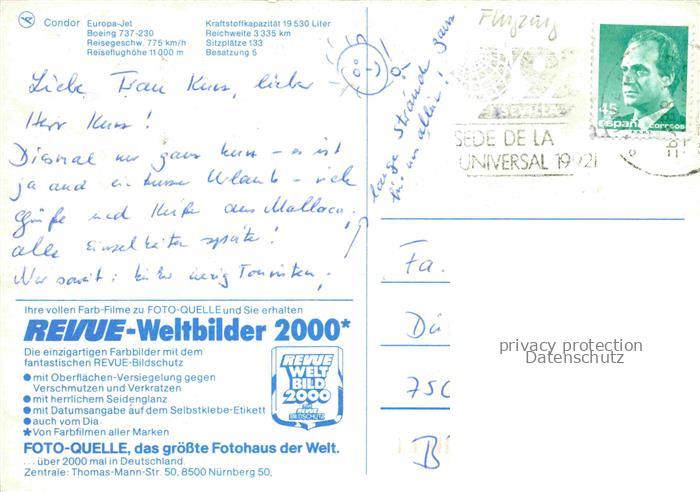 Condor Europa-Jet
Boeing 737-230
Reisegeschw. 775 km/h
Reiseflughöhe 11 000 m
Kraftstoffkapazität 19 530 Liter
Reichweite 3 335 km
Sitzplätze 133
Besatzung 5
Liebe Frau Kurs, lieber
Herr Kurs!
Diesmal nur ganz kurz – es ist
ja auch ein kurzer Urlaub – viele
Grüße und Küsse aus Mallorca,
alle Einzelheiten später!
Nur soviel: bisher wenig Touristen,
lange Strände ganz
für uns allein!
Ihre vollen Farb-Filme zu FOTO-QUELLE und Sie erhalten
REVUE-Weltbilder 2000*
Die einzigartigen Farbbilder mit dem
fantastischen REVUE-Bildschutz
● mit Oberflächen-Versiegelung gegen
Verschmutzen und Verkratzen
● mit herrlichem Seidenglanz
● mit Datumsangabe auf dem Selbstklebe-Etikett
● auch vom Dia
★ Von Farbfilmen aller Marken
REVUE
WELT
BILD
2000
FOTO-QUELLE, das größte Fotohaus der Welt.
... über 2000 mal in Deutschland.
Zentrale: Thomas-Mann-Str. 50, 8500 Nürnberg 50,
Flugzeug
92
SEVILLA
SEDE DE LA
UNIVERSAL 1992
45
españa correos
Fa.
Dü
750
B
privacy protection
Datenschutz